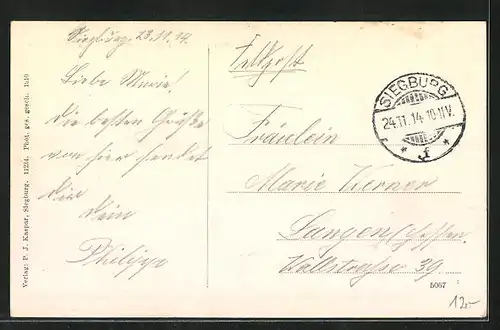 Siegburg, 23.11.14.
Liebe Marie!
Die besten Grüße
von hier sendet
dir
Dein
Philipp
Feldpost
SIEGBURG
24.11.14.10-11V.
* f *
Fräulein
Marie Werner
Langen (Hessen
Wallstrasse 39
Verlag: P. J. Kaspar, Siegburg. 11224. Phot. ges. gesch. 1910
5067
12.-